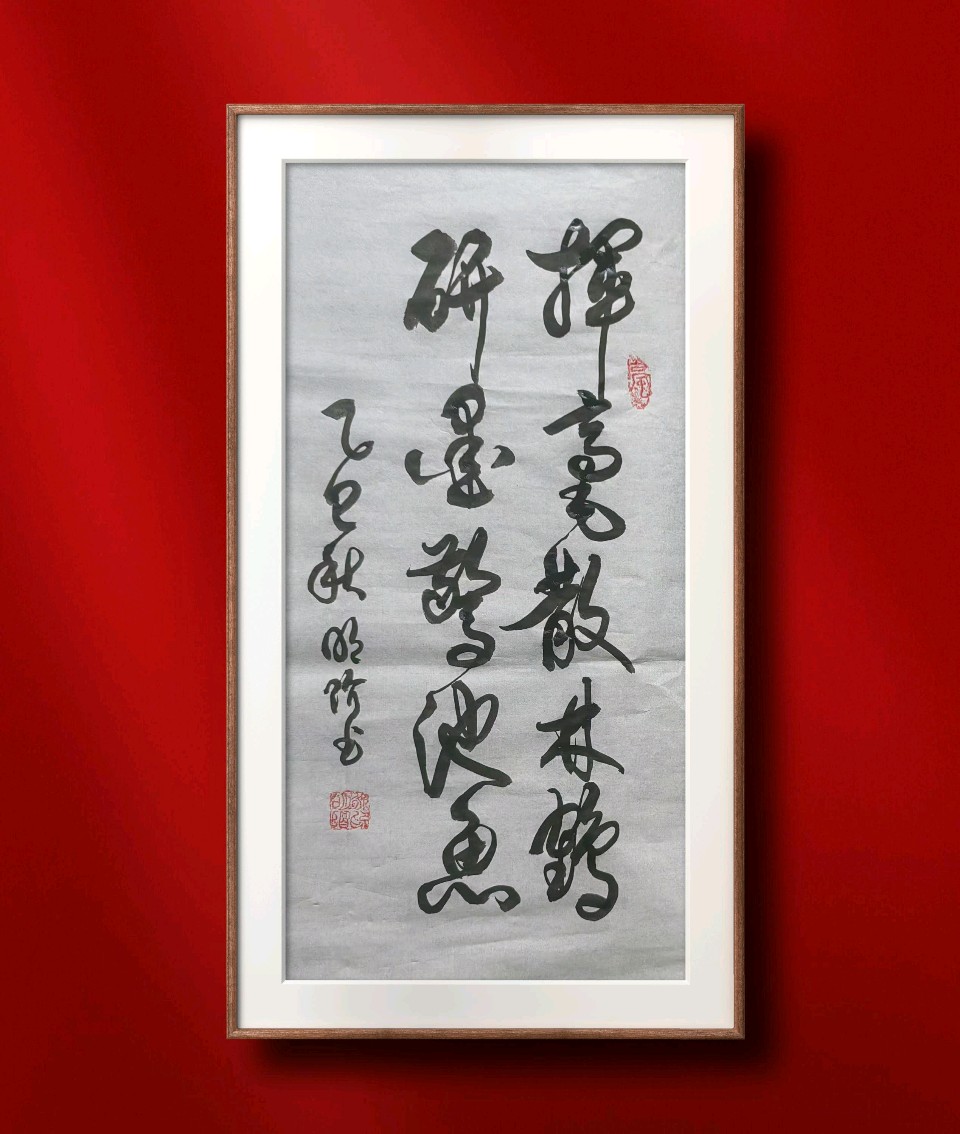 揮毫散林鶴
研墨驚池魚
乙巳秋明阶书